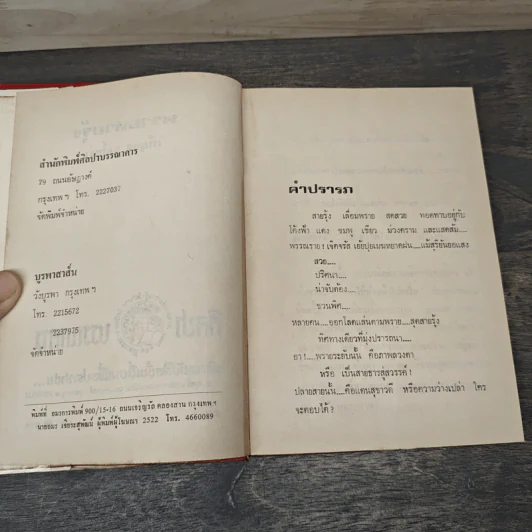 สำนักพิมพ์ศิลปาบรรณาคาร
79 ถนนอัษฎางค์
กรุงเทพ ฯ โทร. 2227037
จัดพิมพ์จำหน่าย
บูรพาสาส์น
วังบูรพา กรุงเทพ ฯ
โทร. 2215672
2237975
จัดจำหน่าย
พิมพ์ที่ อมรการพิมพ์ 900/15-16 ถนนเจริญรัถ คลองสาน กรุงเทพ ฯ
นายณรง เชียระสุพัฒน์ ผู้พิมพ์ผู้โฆษณา 2522 โทร. 4660089
คำปรารภ
สายรุ้ง เลื่อมพราย สดสวย ทอดทาบอยู่กับ
โค้งฟ้า แดง ชมพู เขียว ม่วงคราม และแสดส้ม....
พรรณราย ! เจิดจรัส เย้ยปุยเมฆหยาดฝน....แม้สุริยันยอแสง
สวย....
ปริศนา....
น่าขบคิดต้อง....
ชวนพิศ....
หลายคน....ออกโลดแล่นตามพราย....สุดสายรุ้ง
ทิศทางเดียวที่มุ่งปรารถนา....
อา !....พรายระยับนั้น คือภาพลวงตา
หรือ เป็นสายธารสู่สวรรค์ !
ปลายสายนั้น....คือแดนสุขาวดี หรือความว่างเปล่า ใคร
จะตอบได้ ?